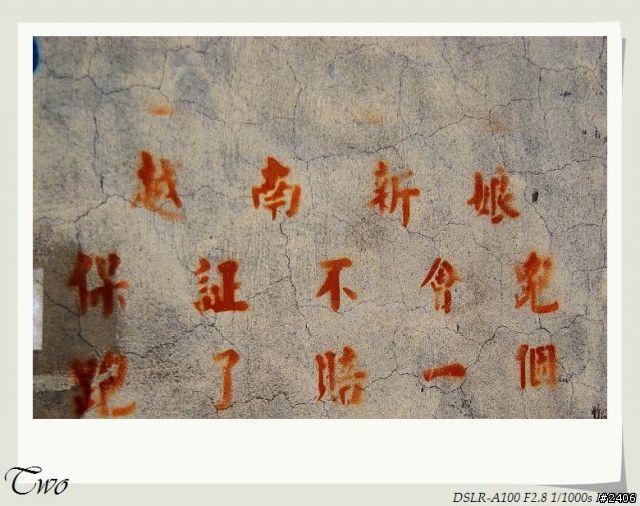 越南新娘
保証不會跑
跑了賠一個
Two
DSLR-A100 F2.8 1/1000s
#2406